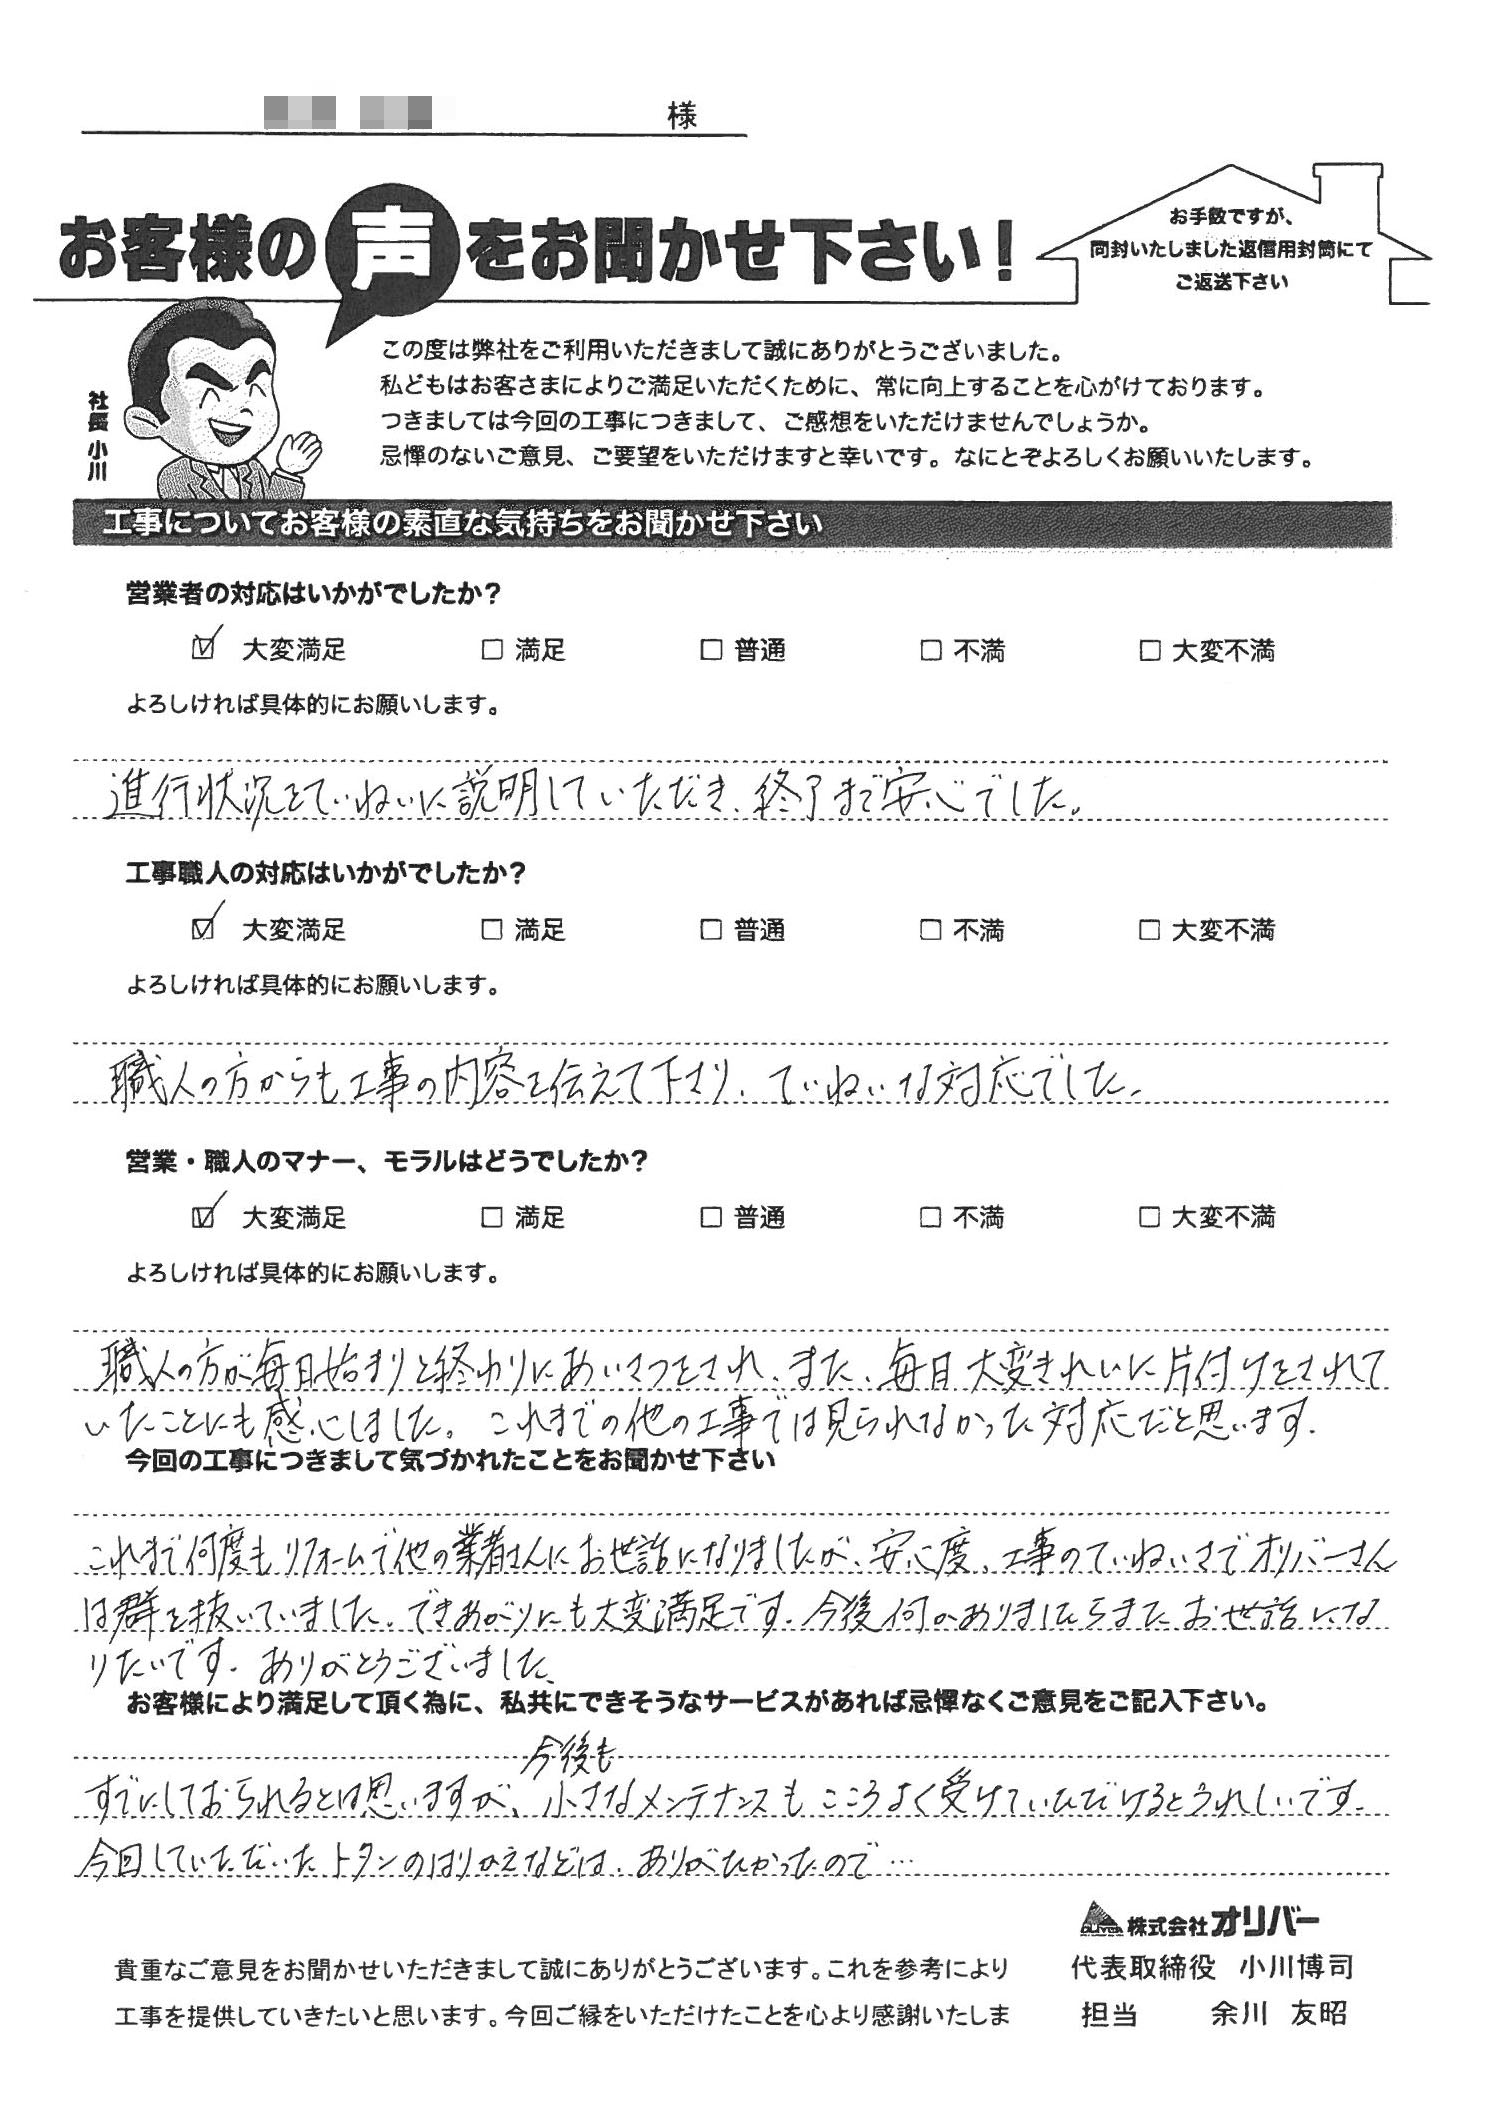 様
お客様の声をお聞かせ下さい!
お手数ですが、
同封いたしました返信用封筒にて
ご返送下さい
社長 小川
この度は弊社をご利用いただきまして誠にありがとうございました。
私どもはお客さまによりご満足いただくために、常に向上することを心がけております。
つきましては今回の工事につきまして、ご感想をいただけませんでしょうか。
忌憚のないご意見、ご要望をいただけますと幸いです。なにとぞよろしくお願いいたします。
工事についてお客様の素直な気持ちをお聞かせ下さい
営業者の対応はいかがでしたか?
☑ 大変満足 □ 満足 □ 普通 □ 不満 □ 大変不満
よろしければ具体的にお願いします。
進行状況をていねいに説明していただき、終了まで安心でした。
工事職人の対応はいかがでしたか?
☑ 大変満足 □ 満足 □ 普通 □ 不満 □ 大変不満
よろしければ具体的にお願いします。
職人の方からも工事の内容を伝えて下さり、ていねいな対応でした。
営業・職人のマナー、モラルはどうでしたか?
☑ 大変満足 □ 満足 □ 普通 □ 不満 □ 大変不満
よろしければ具体的にお願いします。
職人の方が毎日始まりと終わりにあいさつをされ、また、毎日大変きれいに片付けをされて
いたことにも感心しました。これまでの他の工事では見られなかった対応だと思います。
今回の工事につきまして気づかれたことをお聞かせ下さい
これまで何度もリフォームで他の業者さんにお世話になりましたが、安心度、工事のていねいさでオリバーさん
は群を抜いていました。できあがりにも大変満足です。今後何かありましたらまたお世話にな
りたいです。ありがとうございました。
お客様により満足して頂く為に、私共にできそうなサービスがあれば忌憚なくご意見をご記入下さい。
今後も
すでにしておられるとは思いますが、小さなメンテナンスもこころよく受けていただけるとうれしいです。
今回していただいたトタンのはりかえなどは、ありがたかったので…
OLIVER 株式会社オリバー
貴重なご意見をお聞かせいただきまして誠にありがとうございます。これを参考により
代表取締役 小川博司
工事を提供していきたいと思います。今回ご縁をいただけたことを心より感謝いたしま
担当 余川 友昭